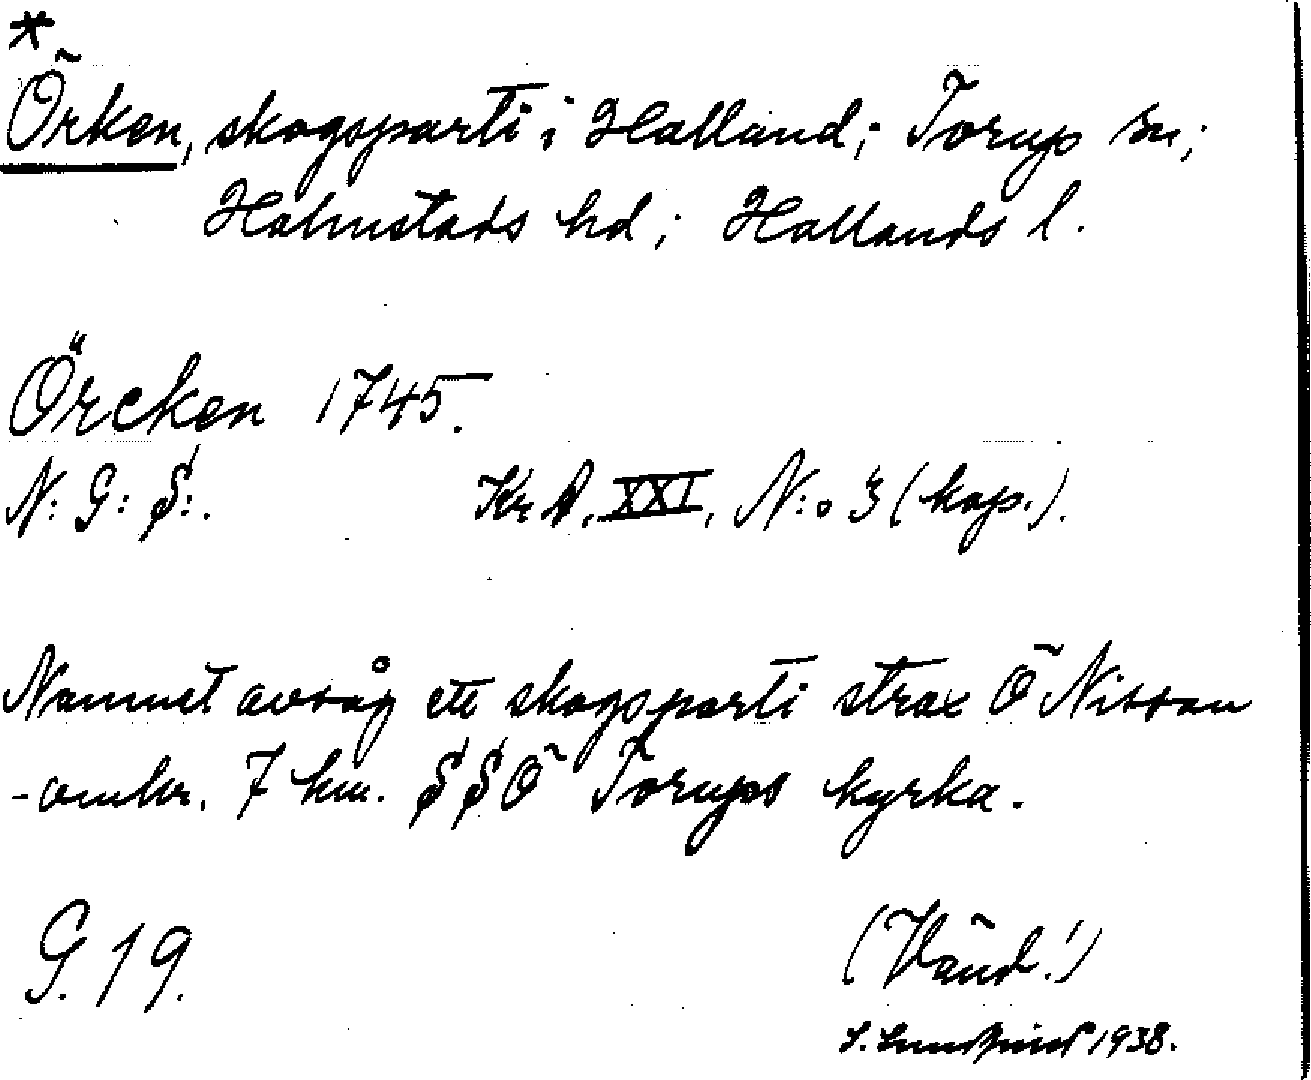 *
Örken, skogsparti i Halland; Torup sn;
Halmstads hd; Hallands l.
Örcken 1745.
N: G: S:. Kr A. XXI, N:o 3 (kop.).
Namnet avsåg ett skogsparti strax Ö Nissan
-omkr. 7 km. SSÖ Torups kyrka.
G. 19.
(Vänd!)
S. 1938.